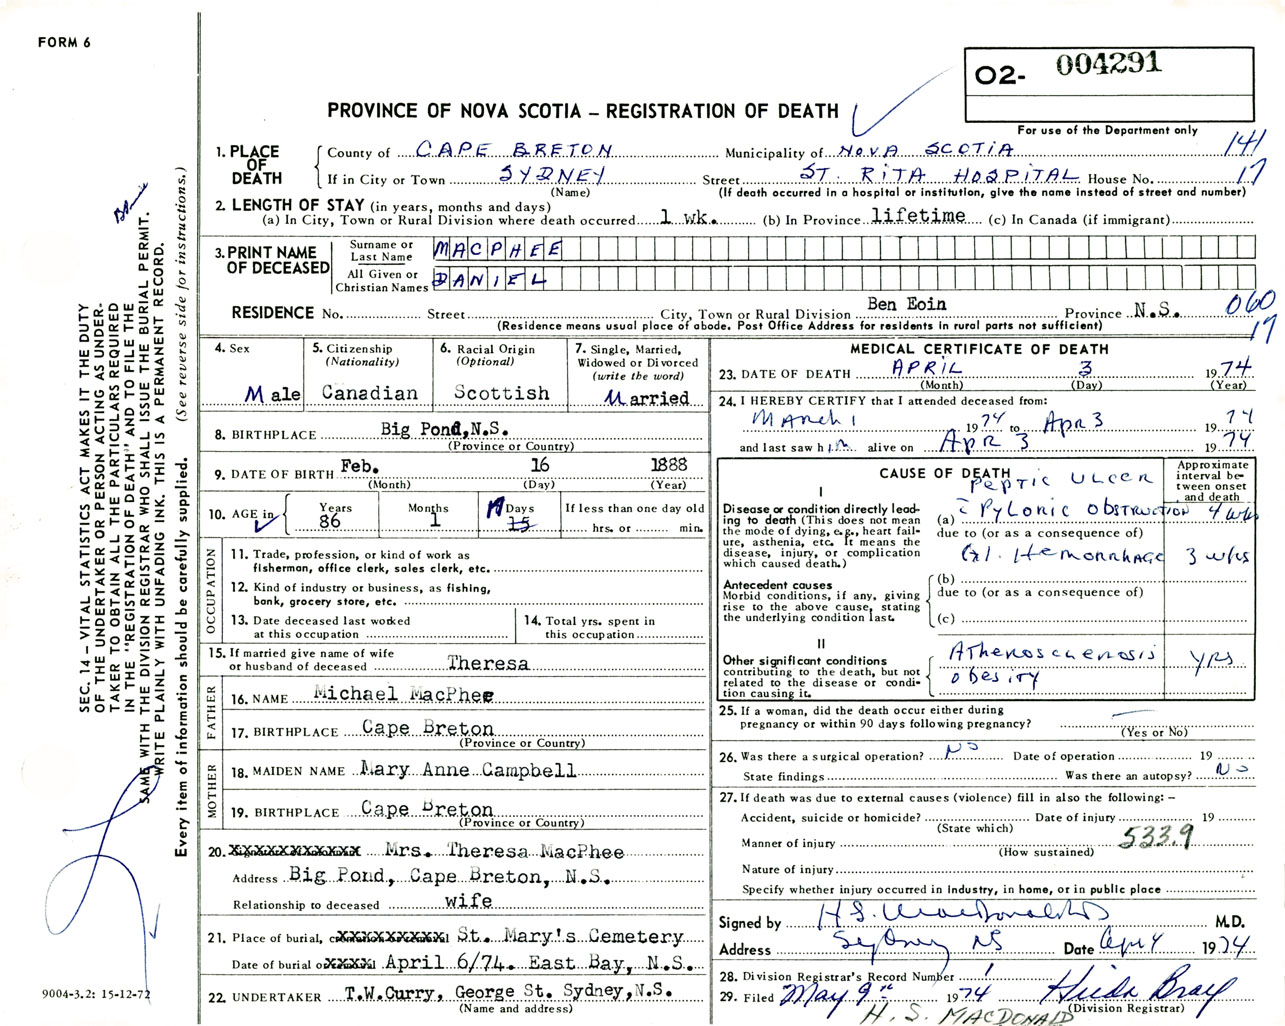 FORM 6
O2- 004291
For use of the Department only
PROVINCE OF NOVA SCOTIA – REGISTRATION OF DEATH
1. PLACE OF DEATH
County of CAPE BRETON Municipality of NOVA SCOTIA 141
If in City or Town SYDNEY Street ST. RITA HOSPITAL House No. 17
(Name) (If death occurred in a hospital or institution, give the name instead of street and number)
2. LENGTH OF STAY (in years, months and days)
(a) In City, Town or Rural Division where death occurred 1 wk. (b) In Province lifetime (c) In Canada (if immigrant)
3. PRINT NAME OF DECEASED
Surname or Last Name MACPHEE
All Given or Christian Names DANIEL
RESIDENCE No. Street City, Town or Rural Division Ben Eoin Province N.S. 060
(Residence means usual place of abode. Post Office Address for residents in rural parts not sufficient) 17
4. Sex Male
5. Citizenship (Nationality) Canadian
6. Racial Origin (Optional) Scottish
7. Single, Married, Widowed or Divorced (write the word) Married
8. BIRTHPLACE Big Pond, N.S.
(Province or Country)
9. DATE OF BIRTH Feb. 16 1888
(Month) (Day) (Year)
10. AGE in Years 86 Months 1 Days 17 15 If less than one day old hrs. or min.
OCCUPATION
11. Trade, profession, or kind of work as fisherman, office clerk, sales clerk, etc.
12. Kind of industry or business, as fishing, bank, grocery store, etc.
13. Date deceased last worked at this occupation
14. Total yrs. spent in this occupation
15. If married give name of wife or husband of deceased Theresa
FATHER
16. NAME Michael MacPhee
17. BIRTHPLACE Cape Breton
(Province or Country)
MOTHER
18. MAIDEN NAME Mary Anne Campbell
19. BIRTHPLACE Cape Breton
(Province or Country)
20. Mrs. Theresa MacPhee
Address Big Pond, Cape Breton, N.S.
Relationship to deceased wife
21. Place of burial, St. Mary's Cemetery
Date of burial April 6/74. East Bay, N.S.
22. UNDERTAKER T.W.Curry, George St. Sydney, N.S.
(Name and address)
MEDICAL CERTIFICATE OF DEATH
23. DATE OF DEATH APRIL 3 1974
(Month) (Day) (Year)
24. I HEREBY CERTIFY that I attended deceased from:
March 1 1974 to Apr 3 1974
and last saw him alive on Apr 3 1974
CAUSE OF DEATH
Approximate interval between onset and death
I
Disease or condition directly leading to death (This does not mean the mode of dying, e.g., heart failure, asthenia, etc. It means the disease, injury, or complication which caused death.)
PEPTIC ULCER
(a) c̄ Pyloric Obstruction 4 wks
due to (or as a consequence of)
G.I. Hemorrhage 3 wks
Antecedent causes
Morbid conditions, if any, giving rise to the above cause, stating the underlying condition last.
(b)
due to (or as a consequence of)
(c)
II
Other significant conditions contributing to the death, but not related to the disease or condition causing it.
Atherosclerosis yrs
obesity
25. If a woman, did the death occur either during pregnancy or within 90 days following pregnancy? —
(Yes or No)
26. Was there a surgical operation? No Date of operation 19
State findings Was there an autopsy? No
27. If death was due to external causes (violence) fill in also the following: –
Accident, suicide or homicide? Date of injury 19
(State which)
Manner of injury 533.9
(How sustained)
Nature of injury
Specify whether injury occurred in Industry, in home, or in public place
Signed by H.S. MacDonald M.D.
Address Sydney NS Date Apr 4 1974
28. Division Registrar's Record Number 1
29. Filed May 9th 1974 Hilda Bray
(Division Registrar)
H. S. MACDONALD
SEC. 14 – VITAL STATISTICS ACT MAKES IT THE DUTY
OF THE UNDERTAKER OR PERSON ACTING AS UNDER-
TAKER TO OBTAIN ALL THE PARTICULARS REQUIRED
IN THE "REGISTRATION OF DEATH" AND TO FILE THE
SAME WITH THE DIVISION REGISTRAR WHO SHALL ISSUE THE BURIAL PERMIT.
WRITE PLAINLY WITH UNFADING INK. THIS IS A PERMANENT RECORD.
Every item of information should be carefully supplied. (See reverse side for instructions.)
9004-3.2: 15-12-72